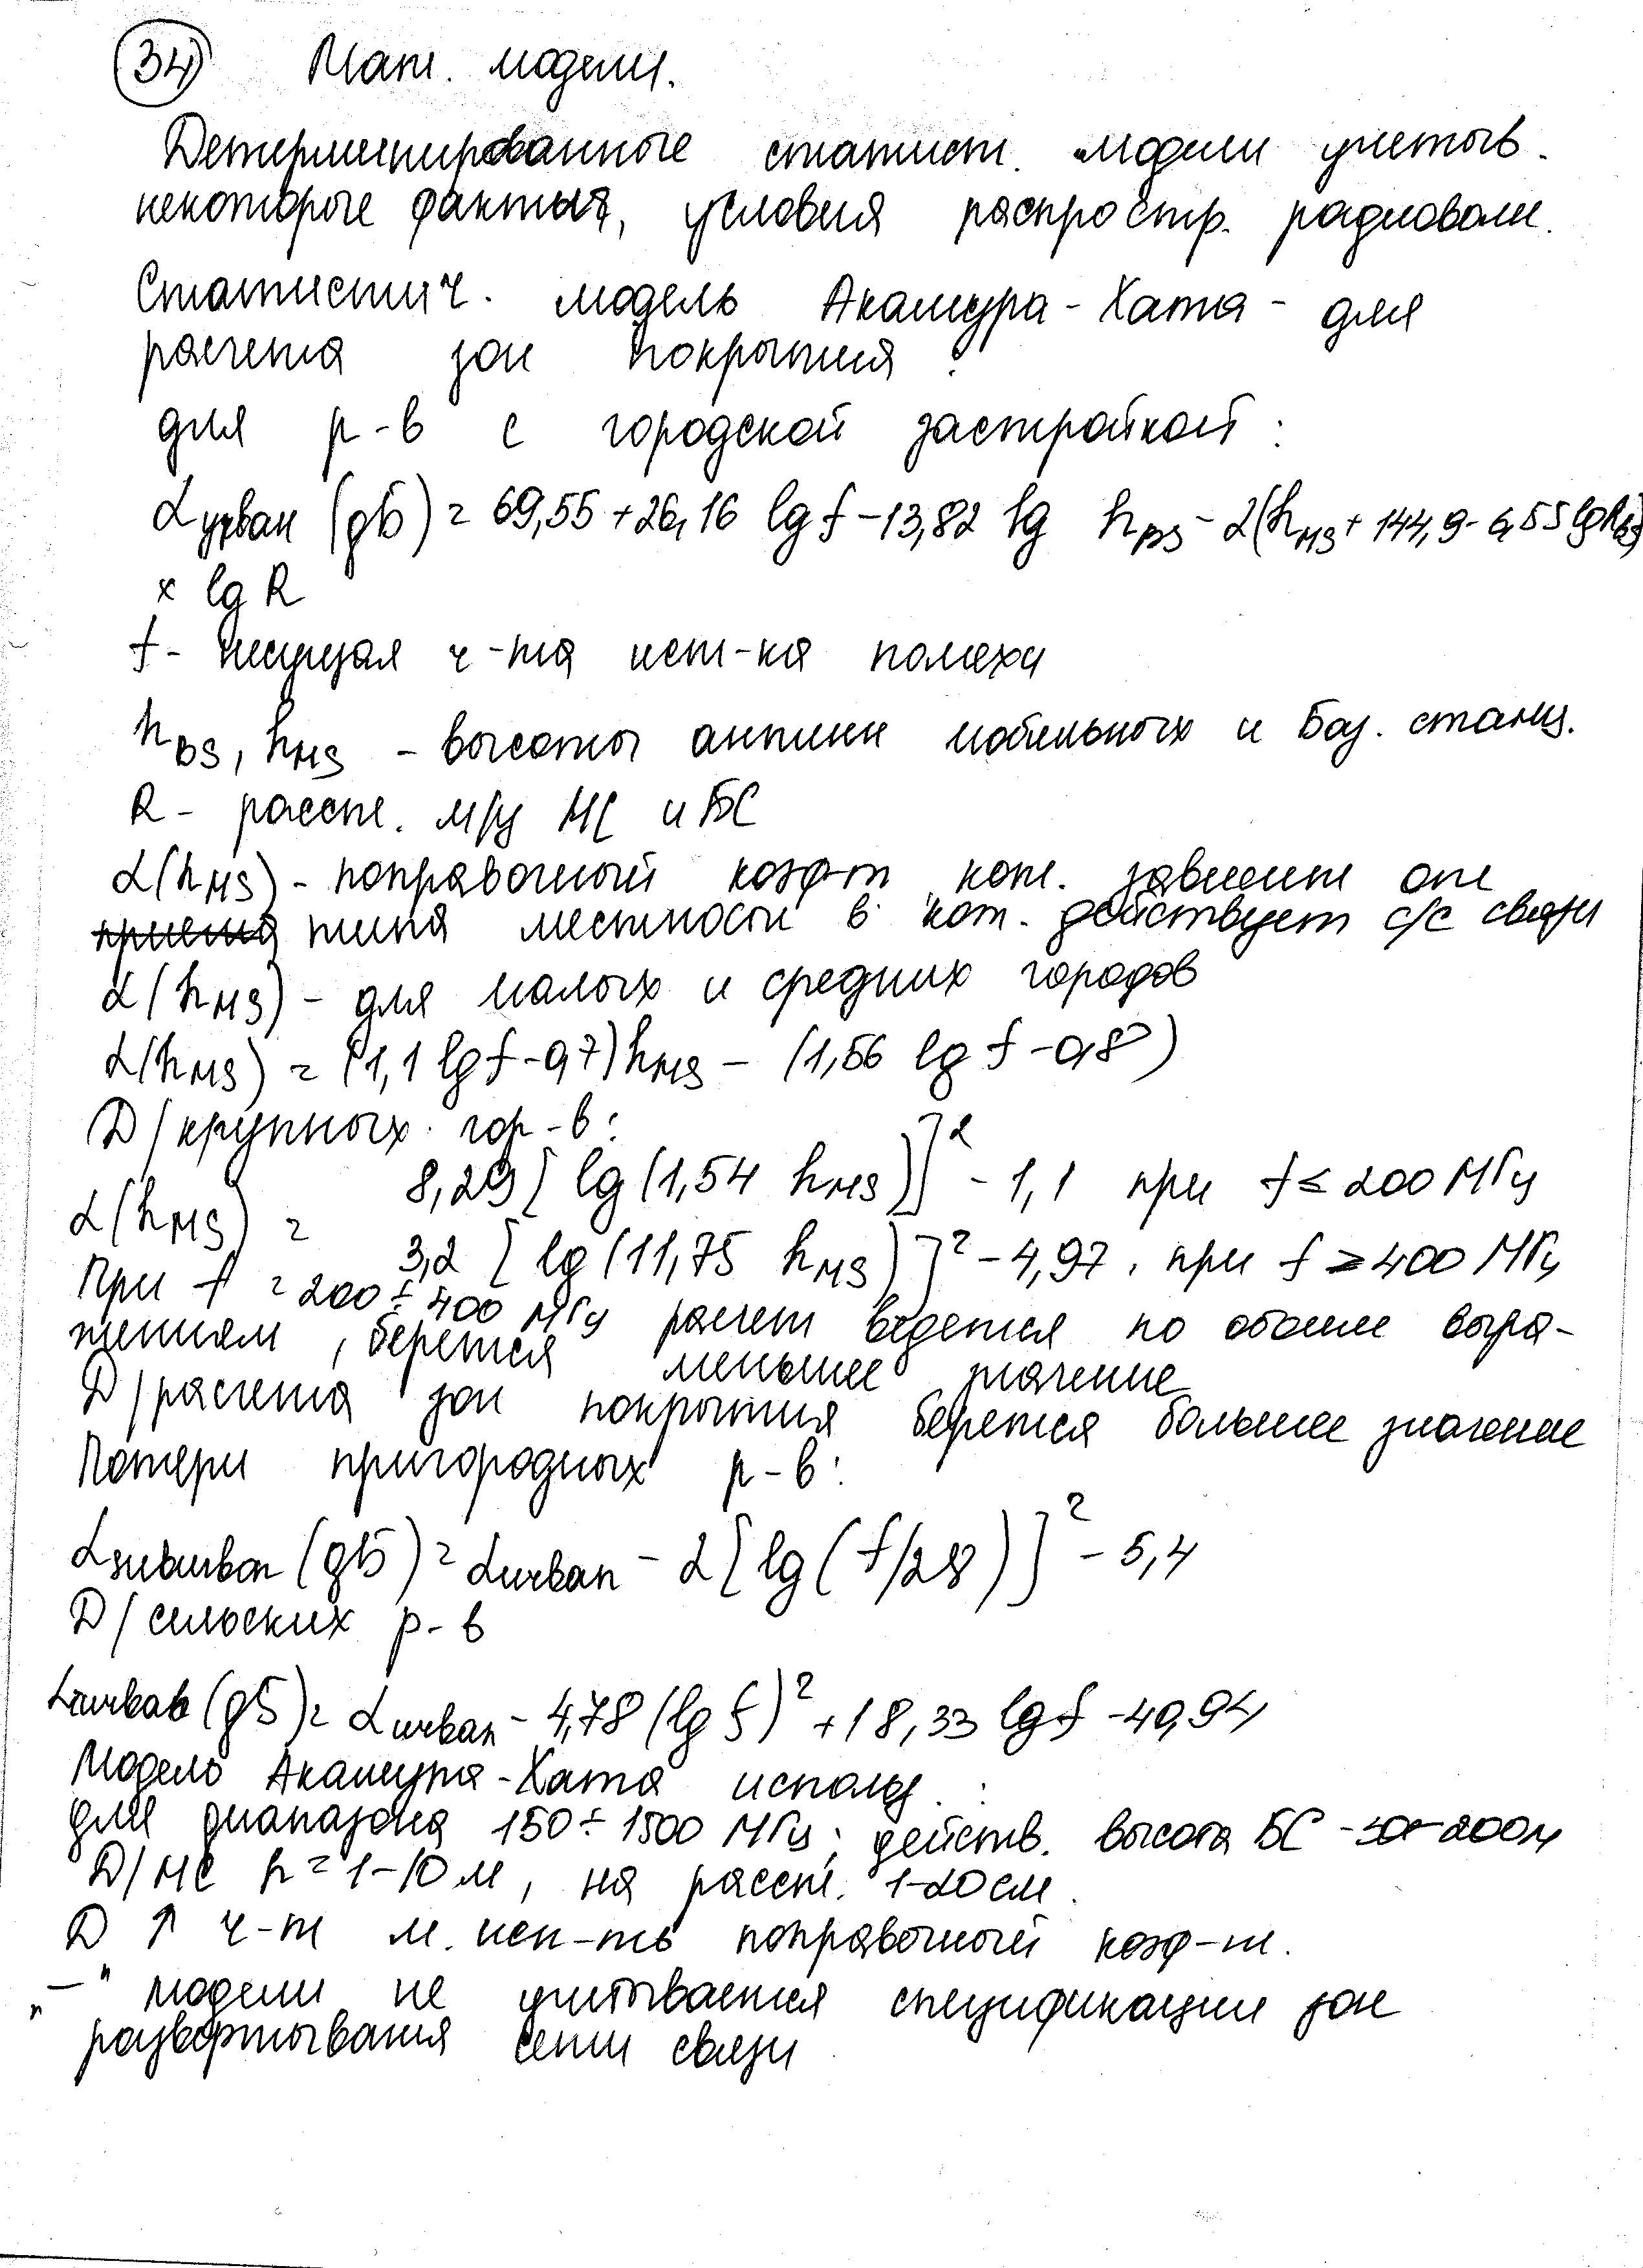 34 Мат. модели.
Детерминированные статист. модели учетыв.
некоторые факты, условия распростр. радиоволн.
Статистич. модель Акамура - Хата - для
расчета зон покрытия:
для р-в с городской застройкой:
Lурban (дБ) = 69,55 + 26,16 lg f - 13,82 lg hBS - α(hMS + 144,9 - 6,55 lg hBS)
× lg R
f - несущая ч-та ист-ка помехи
hBS, hMS - высоты антенн мобильных и Баз. станц.
R - расст. м/у МС и БС
α(hMS) - поправочный коэф-т кот. зависит от
типа местности в кот. действует с/с связи
α(hMS) - для малых и средних городов
α(hMS) = (1,1 lg f - 0,7) hMS - (1,56 lg f - 0,8)
Д/крупных гор-в:
8,29 [lg (1,54 hMS)]² - 1,1 при f ≤ 200 МГц
α(hMS) =
3,2 [lg (11,75 hMS)]² - 4,97, при f ≥ 400 МГц
При f = 200 ÷ 400 МГц расчет ведется по обоим выра-
жениям, берется меньшее значение
Д/расчета зон покрытия берется большее значение
Потери пригородных р-в:
Lsuburban (дБ) = Lurban - 2 [lg (f/28)]² - 5,4
Д/сельских р-в
(дБ) = Lurban - 4,78 (lg f)² + 18,33 lg f - 40,94
Модель Акамура-Хата использ.:
для диапазона 150 ÷ 1500 МГц; действ. высота БС - 30-200м
Д/МС h = 1-10 м, на расст. 1-20 см.
Д ↑ ч-т м. исп-ть поправочный коэф-т.
"—" модели не учитывается спецификации зон
развертывания сети связи